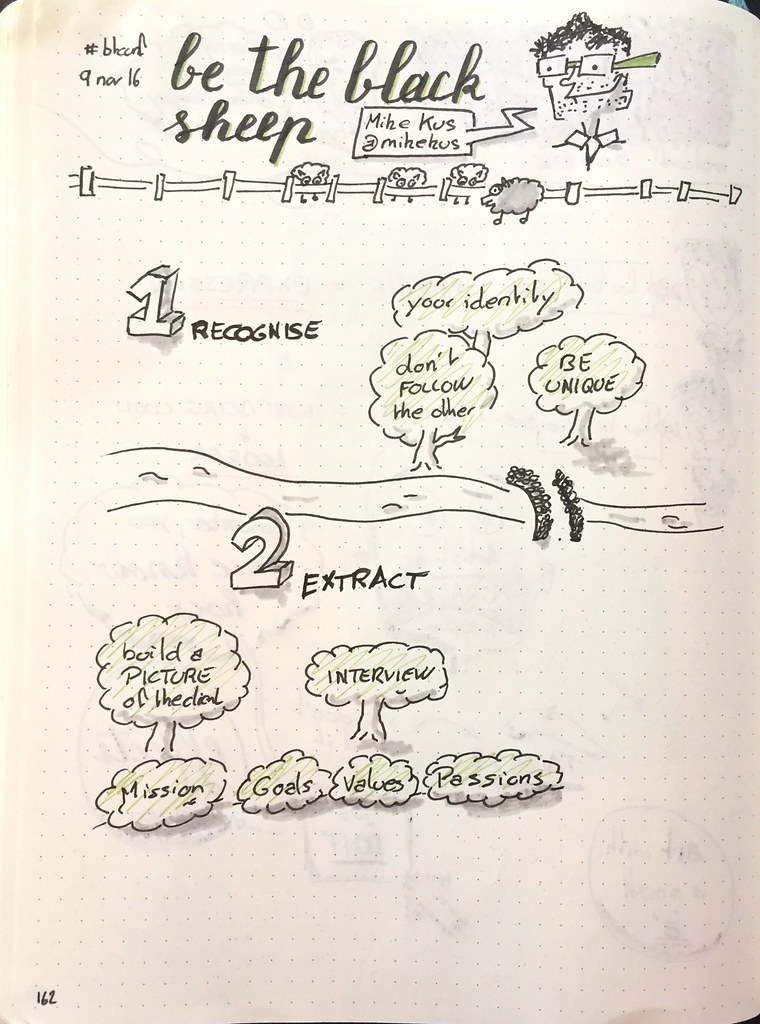 #btconf
9 nov 16
be the black
sheep
Mike Kus
@mikekus
1 RECOGNISE
your identity
don't
FOLLOW
the other
BE
UNIQUE
2 EXTRACT
build a
PICTURE
of the client
INTERVIEW
Mission
Goals
Values
Passions
162